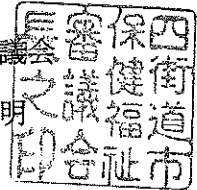 四街道市
保健福祉
審議会
長之印
議会
明